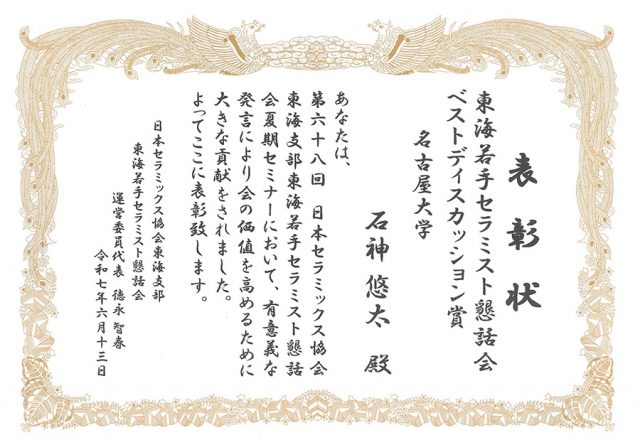 表彰状
東海若手セラミスト懇話会
ベストディスカッション賞
名古屋大学
石神悠太 殿
あなたは、
第六十八回 日本セラミックス協会
東海支部東海若手セラミスト懇話
会夏期セミナーにおいて、有意義な
発言により会の価値を高めるために
大きな貢献をされました。
よってここに表彰致します。
日本セラミックス協会東海支部
東海若手セラミスト懇話会
運営委員代表 徳永智春
令和七年六月十三日